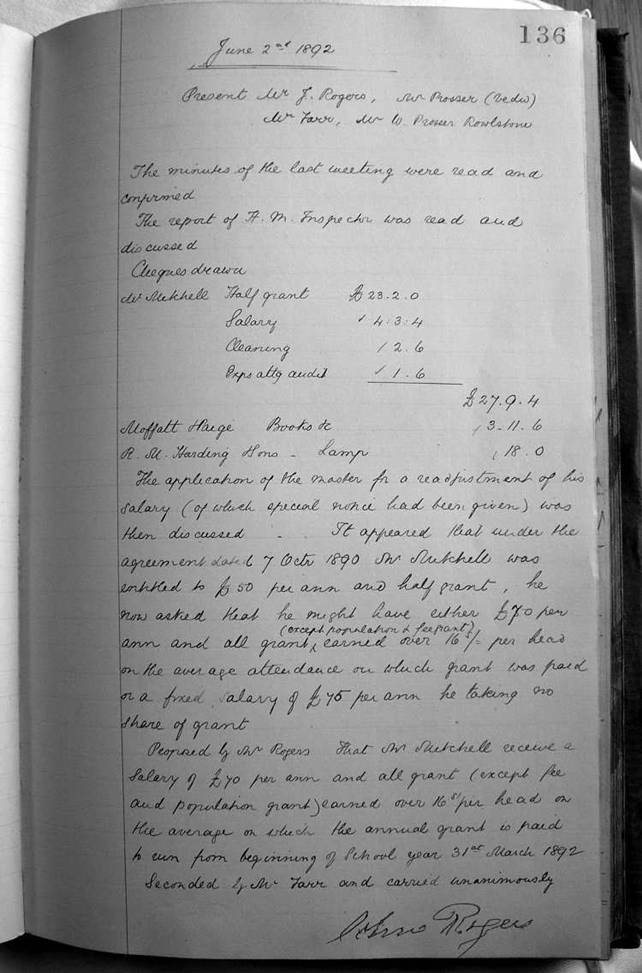 136
June 2nd 1892
Present Mr J. Rogers, Mr Prosser (Vedw)
Mr Farr, Mr W. Prosser Rowlstone
The minutes of the last meeting were read and
confirmed
The report of H. M. Inspector was read and
discussed
Cheques drawn
Mr Mitchell Half grant £23.2.0
Salary 4:3:4
Cleaning 2.6
Exps attg audit 1.6
£27.9.4
Moffatt Paige Books &c 3-11.6
R. M. Harding Sons - Lamp 18.0
The application of the master for a readjustment of his
salary (of which special notice had been given) was
then discussed - . It appeared that under the
agreement dated 7 Octr 1890 Mr Mitchell was
entitled to £50 per ann and half grant, he
now asked that he might have either £70 per
(except population & fee grant)
ann and all grant, earned over 16s/- per head
on the average attendance on which grant was paid
or a fixed salary of £75 per ann he taking no
share of grant
Proposed by Mr Rogers That Mr Mitchell receive a
Salary of £70 per ann and all grant (except fee
and population grant) earned over 16s/ per head on
the average on which the annual grant is paid
to run from beginning of School year 31st March 1892
Seconded by Mr Farr and carried unanimously
John Rogers